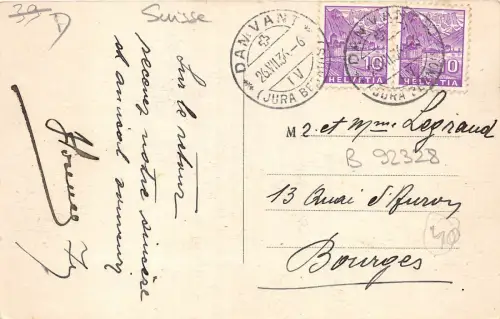 39
D
Suisse
Sur le retour
recevez notre sincère
et amical souvenir
DAMVANT
26.VII.34-6
IV
(JURA BERNOIS)
10
HELVETIA
DAMVANT
10
HELVETIA
M 2. et Mme Legraud
B 92328
13 Quai d'Auron
40
Bourges